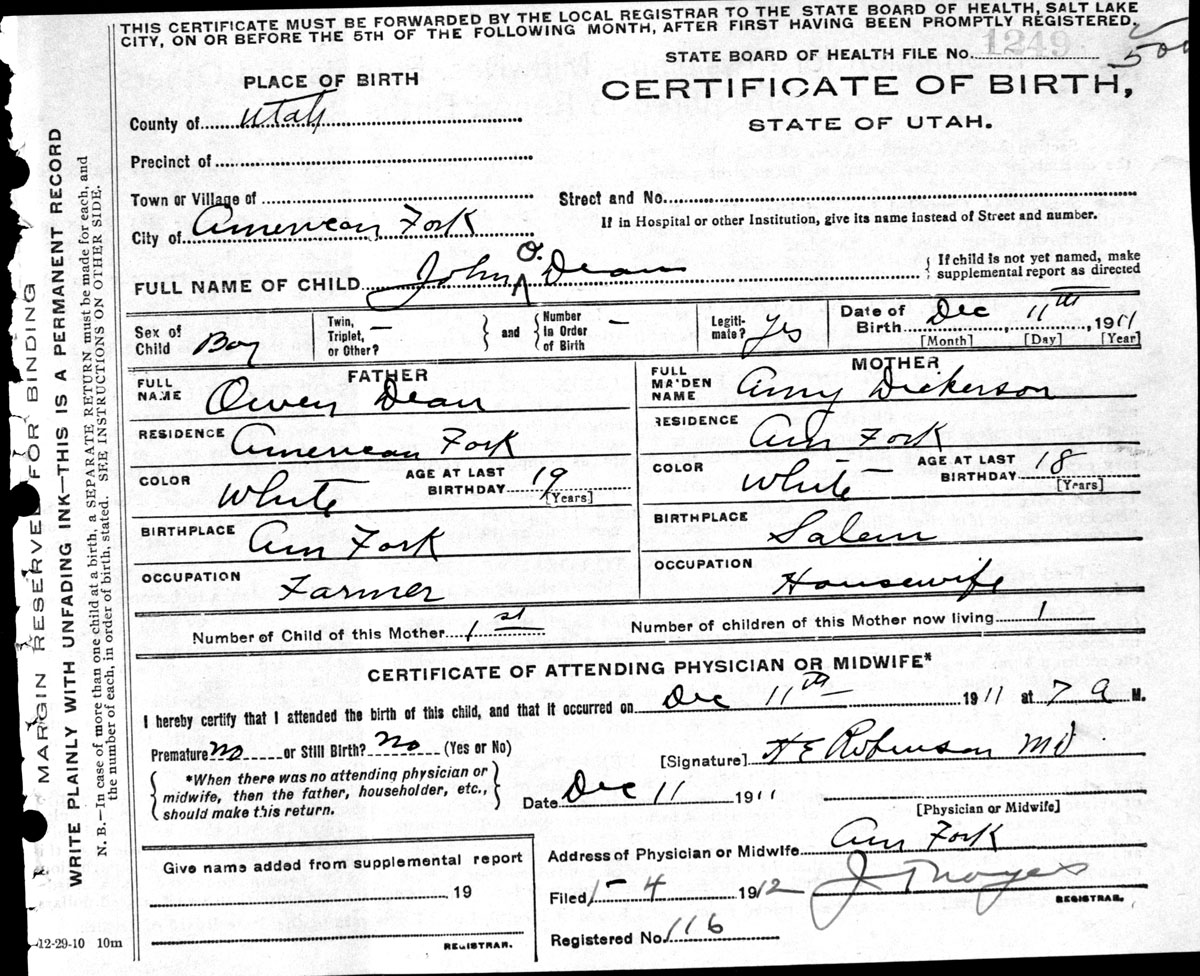 THIS CERTIFICATE MUST BE FORWARDED BY THE LOCAL REGISTRAR TO THE STATE BOARD OF HEALTH, SALT LAKE
CITY, ON OR BEFORE THE 5TH OF THE FOLLOWING MONTH, AFTER FIRST HAVING BEEN PROMPTLY REGISTERED.
STATE BOARD OF HEALTH FILE No. 1249
500
PLACE OF BIRTH
CERTIFICATE OF BIRTH,
STATE OF UTAH.
County of Utah
Precinct of
Town or Village of
Street and No.
City of American Fork
If in Hospital or other Institution, give its name instead of Street and number.
FULL NAME OF CHILD John O. Dean
If child is not yet named, make
supplemental report as directed
Sex of Child Boy
Twin, Triplet, or Other? —
and
Number in Order of Birth —
Legitimate? Yes
Date of Birth Dec 11th, 1911
[Month] [Day] [Year]
FATHER
MOTHER
FULL NAME Owen Dean
FULL MAIDEN NAME Amy Dickerson
RESIDENCE American Fork
RESIDENCE Am Fork
COLOR White AGE AT LAST BIRTHDAY 19 [Years]
COLOR White AGE AT LAST BIRTHDAY 18 [Years]
BIRTHPLACE Am Fork
BIRTHPLACE Salem
OCCUPATION Farmer
OCCUPATION Housewife
Number of Child of this Mother 1st
Number of children of this Mother now living 1
CERTIFICATE OF ATTENDING PHYSICIAN OR MIDWIFE*
I hereby certify that I attended the birth of this child, and that it occurred on Dec 11th 1911 at 7 A M.
Premature no or Still Birth? no (Yes or No)
[Signature] H E Robinson MD
*When there was no attending physician or
midwife, then the father, householder, etc.,
should make this return.
Date Dec 11 1911
[Physician or Midwife]
Give name added from supplemental report
19
REGISTRAR.
Address of Physician or Midwife Am Fork
Filed 1-4 1912 J Noyes
REGISTRAR.
Registered No. 116
12-29-10 10m
MARGIN RESERVED FOR BINDING
WRITE PLAINLY WITH UNFADING INK—THIS IS A PERMANENT RECORD
N. B.—In case of more than one child at a birth, a SEPARATE RETURN must be made for each, and
the number of each, in order of birth, stated. SEE INSTRUCTONS ON OTHER SIDE.